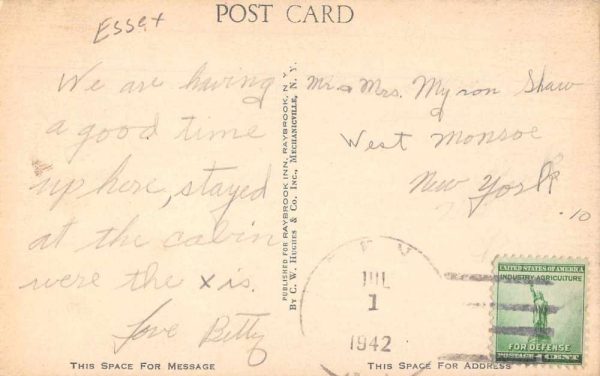 POST CARD
Essex
We are having
a good time
up here, stayed
at the cabin
were the x is.
Love Betty
PUBLISHED FOR RAYBROOK INN, RAYBROOK, N.Y.
BY C. W. HUGHES & CO. INC., MECHANICVILLE, N. Y.
Mr. & Mrs. Myron Shaw
West Monroe
New York
.10
JUL
1
1942
UNITED STATES OF AMERICA
INDUSTRY AGRICULTURE
FOR DEFENSE
POSTAGE 1 CENT
THIS SPACE FOR MESSAGE
THIS SPACE FOR ADDRESS